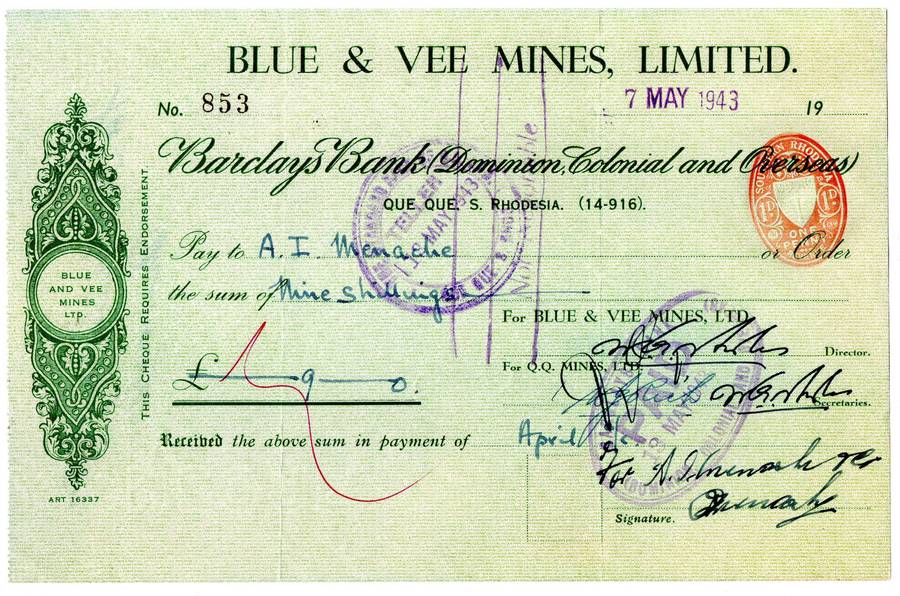 BLUE & VEE MINES, LIMITED.
No. 853
7 MAY 1943
19
Barclays Bank (Dominion, Colonial and Overseas)
QUE QUE, S. RHODESIA. (14-916).
Pay to A. I. Menache or Order
the sum of Nine shillings
For BLUE & VEE MINES, LTD.
Director.
For Q.Q. MINES, LTD.
Secretaries.
£ — 9 — 0.
Received the above sum in payment of April
For A. I. Menache
Signature.
THIS CHEQUE REQUIRES ENDORSEMENT.
BLUE
AND VEE
MINES
LTD.
ART 16337
TELLER
MAY 1943
PAID
18 MAY
SOUTHERN RHODESIA
1D 1D
ONE
PENNY